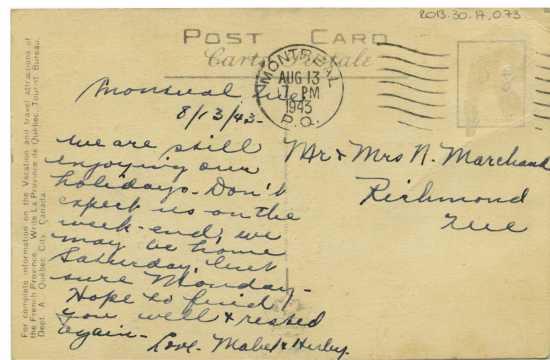 2013.30.17.073
POST CARD
Carte Postale
MONTREAL
AUG 13
17 PM
1943
P.Q.
Montreal Que
8/13/43-
We are still
enjoying our
holidays. Don't
expect us on the
week-end, we
may be home
Saturday, but
sure Monday-
Hope to find
you well & rested
again-
Love. Mabel & Herby.
Mr & Mrs N. Marchand
Richmond
Que
For complete information on the Vacation and travel attractions of
the French Province, Write La Province de Québec, Tourist Bureau,
Dept. A., Québec City, Canada.